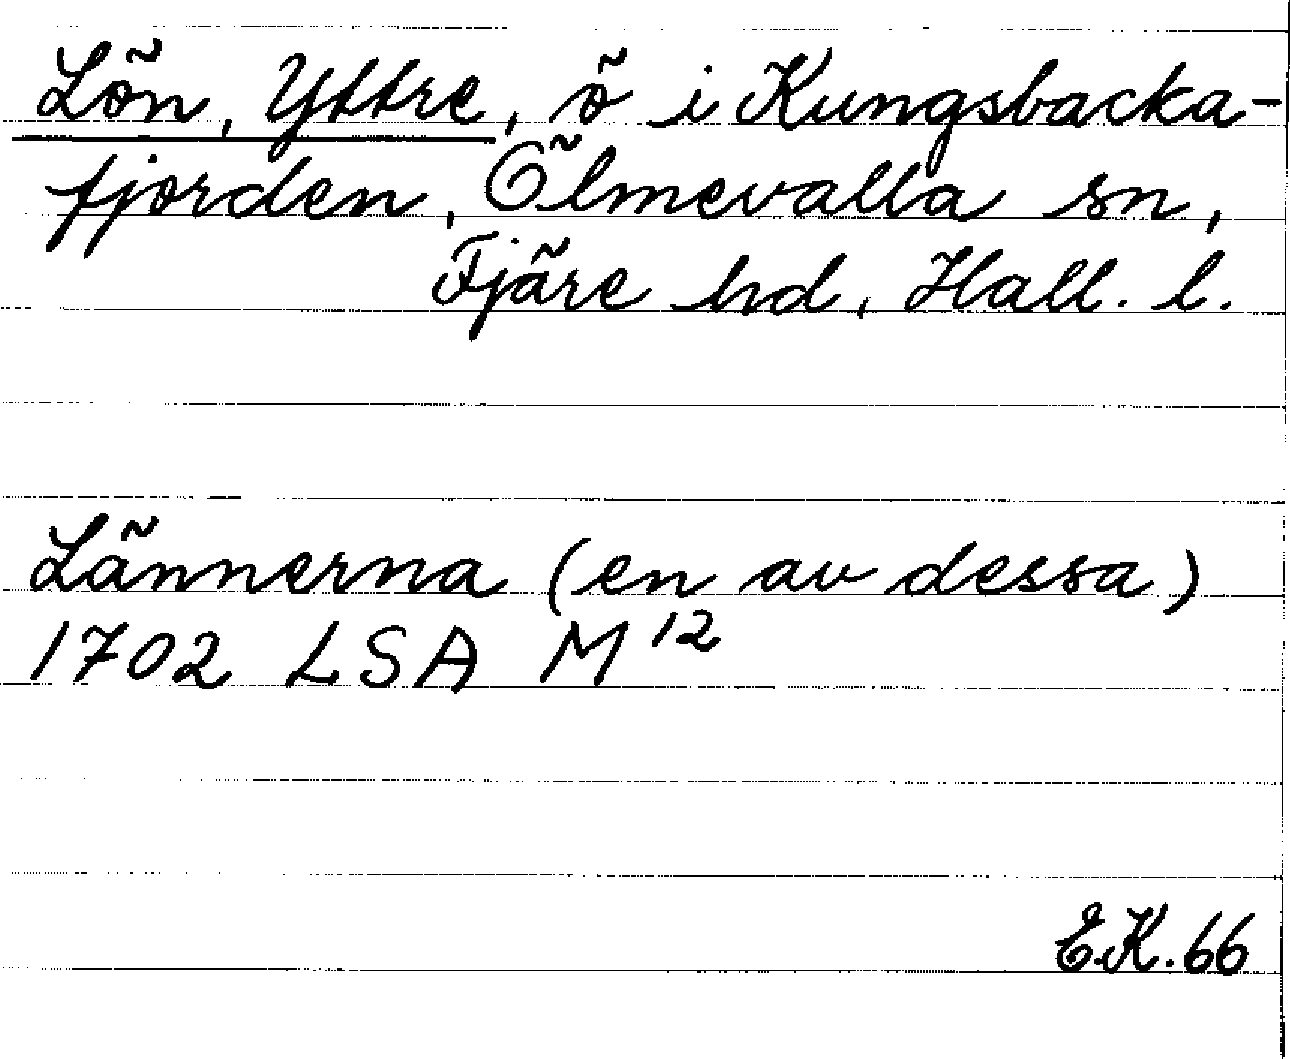 Lön, Yttre, ö i Kungsbacka-
fjorden, Ölmevalla sn,
Fjäre hd, Hall. l.
Lännerna (en av dessa)
1702 LSA M¹²
E.K. 66